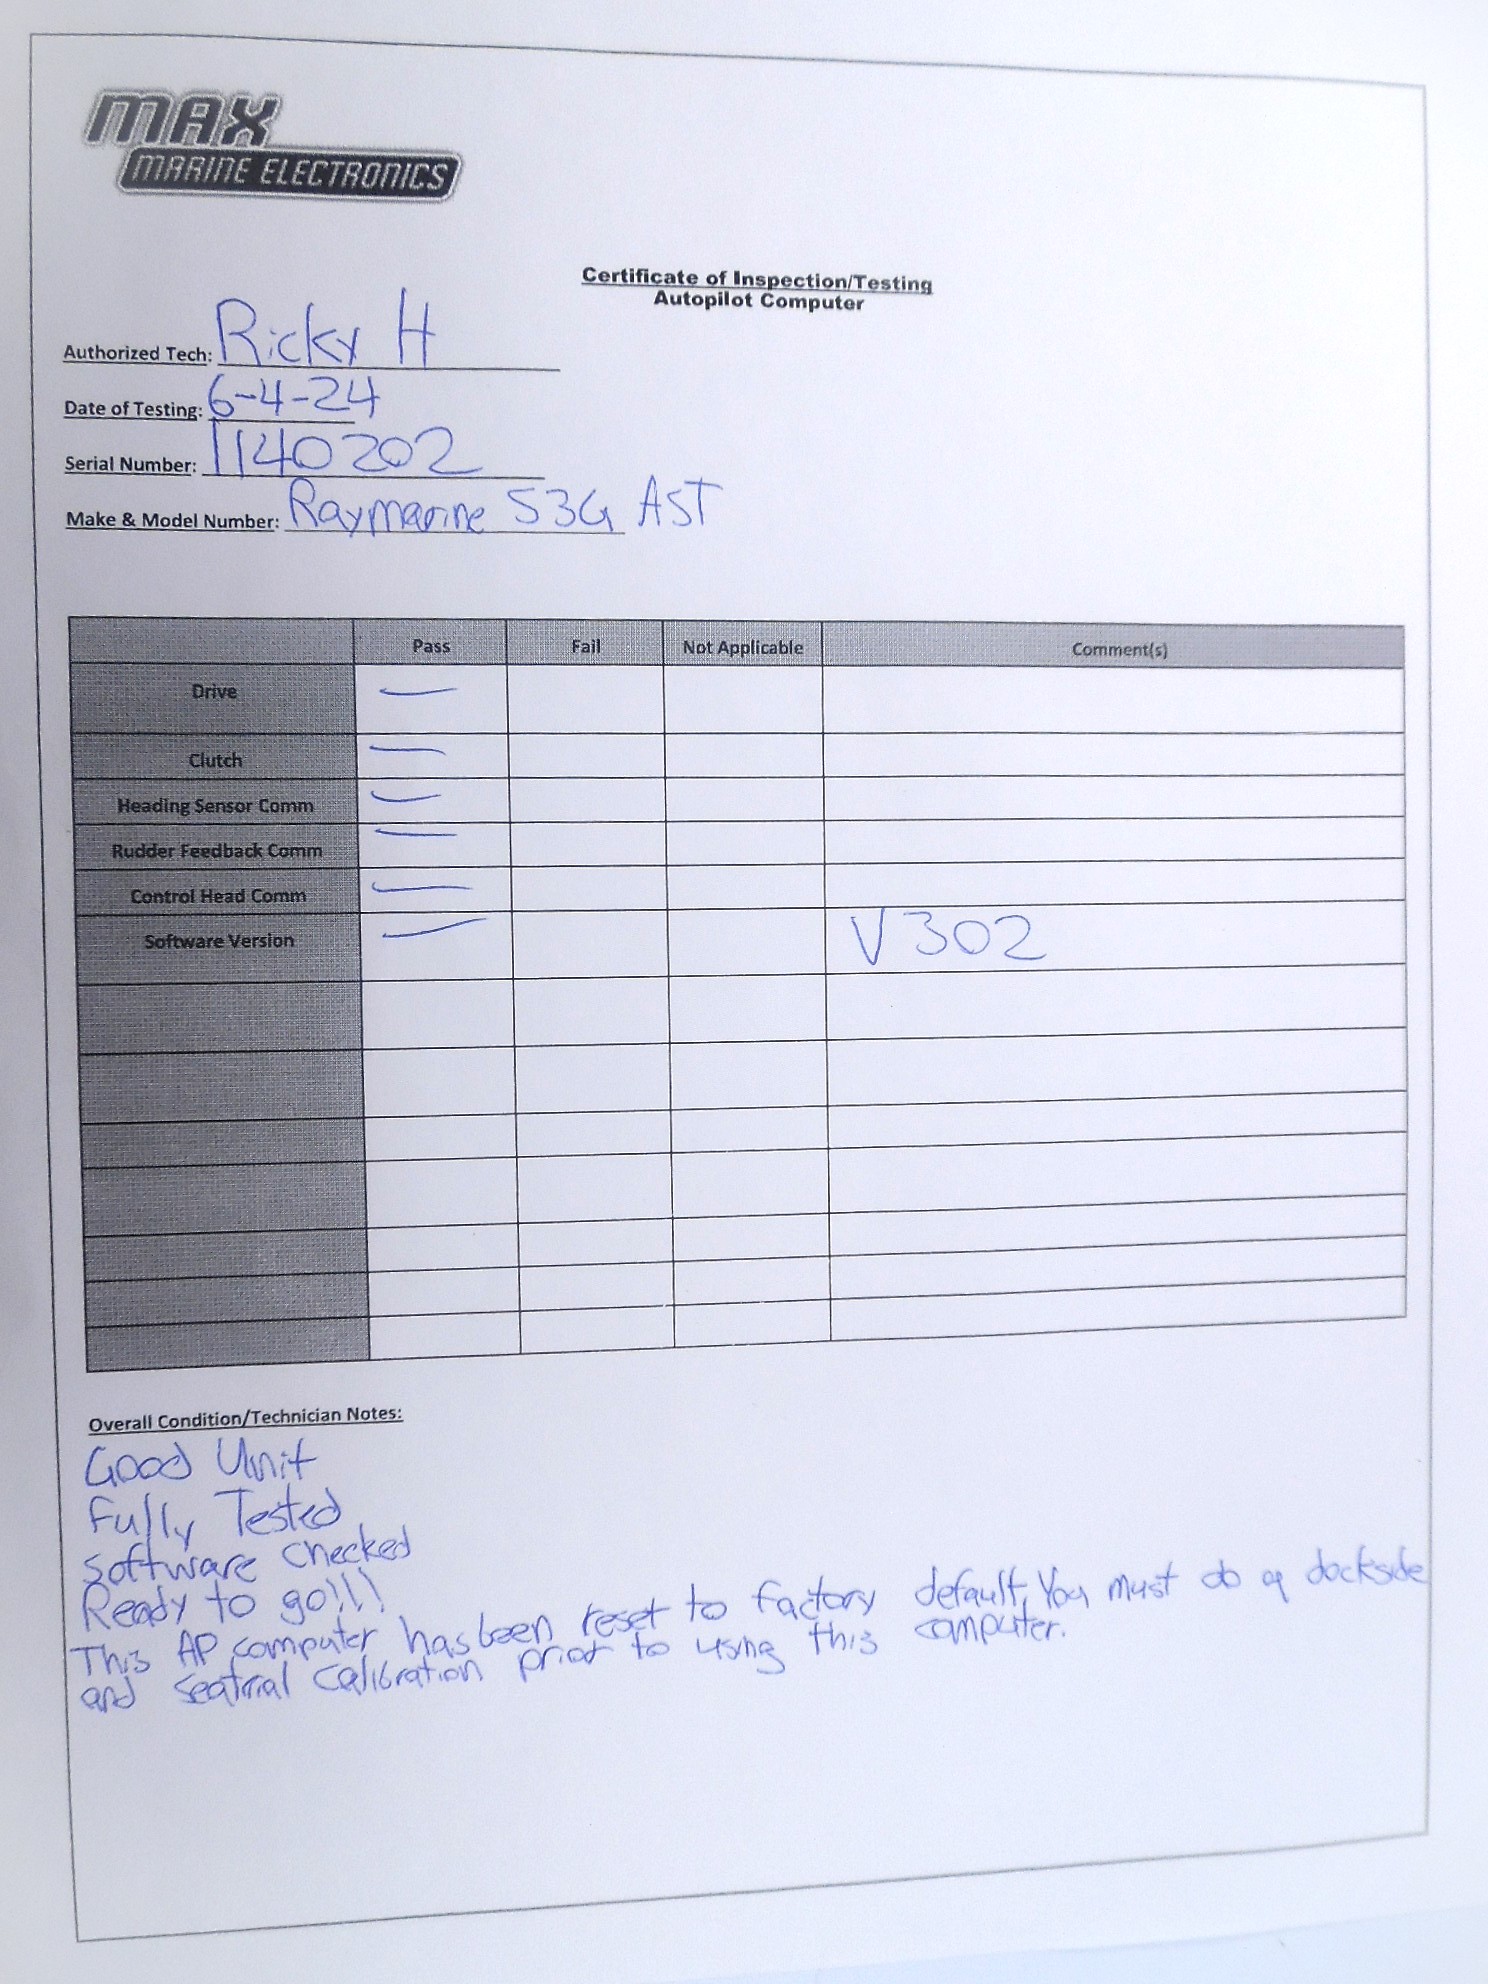 MAX
MARINE ELECTRONICS
Certificate of Inspection/Testing
Autopilot Computer
Authorized Tech: Ricky H
Date of Testing: 6-4-24
Serial Number: 1140202
Make & Model Number: Raymarine S3G AST
Pass Fail Not Applicable Comment(s)
Drive
Clutch
Heading Sensor Comm
Rudder Feedback Comm
Control Head Comm
Software Version V302
Overall Condition/Technician Notes:
Good Unit
Fully Tested
Software Checked
Ready to go!!!
This AP computer has been reset to factory default, You must do a dockside
and seatrial calibration prior to using this computer.